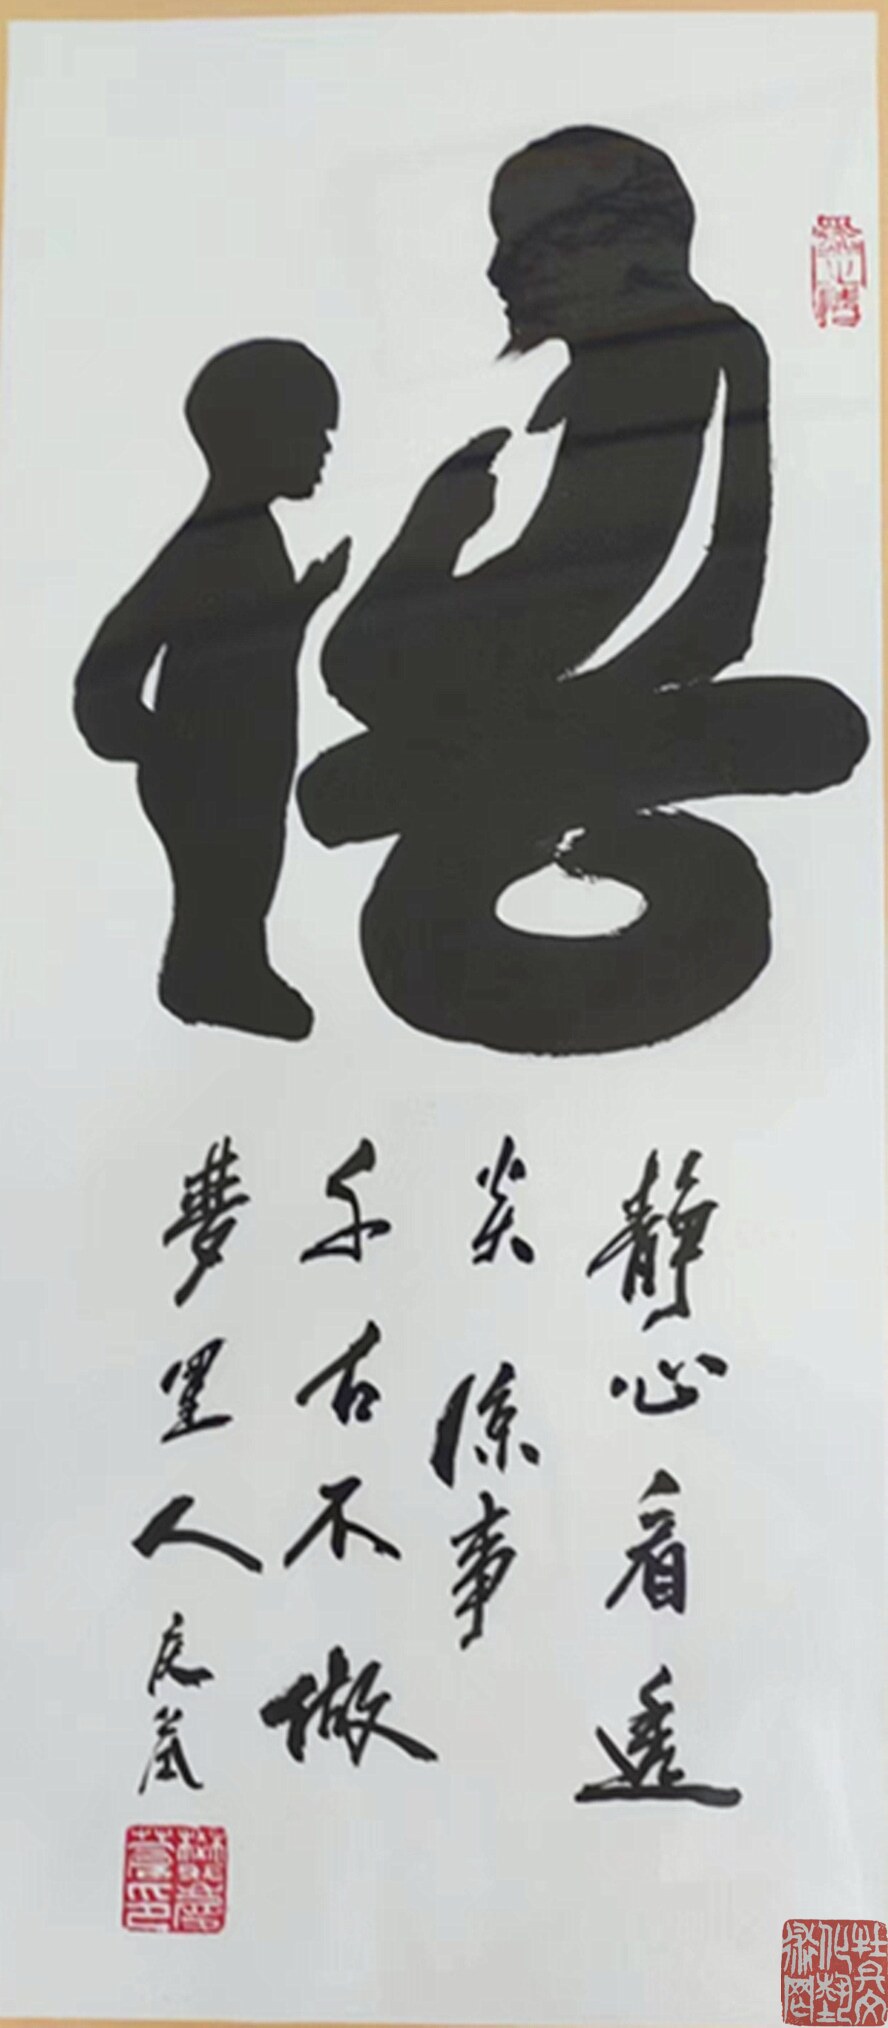 悟
静心看透
炎凉事
千古不做
夢里人